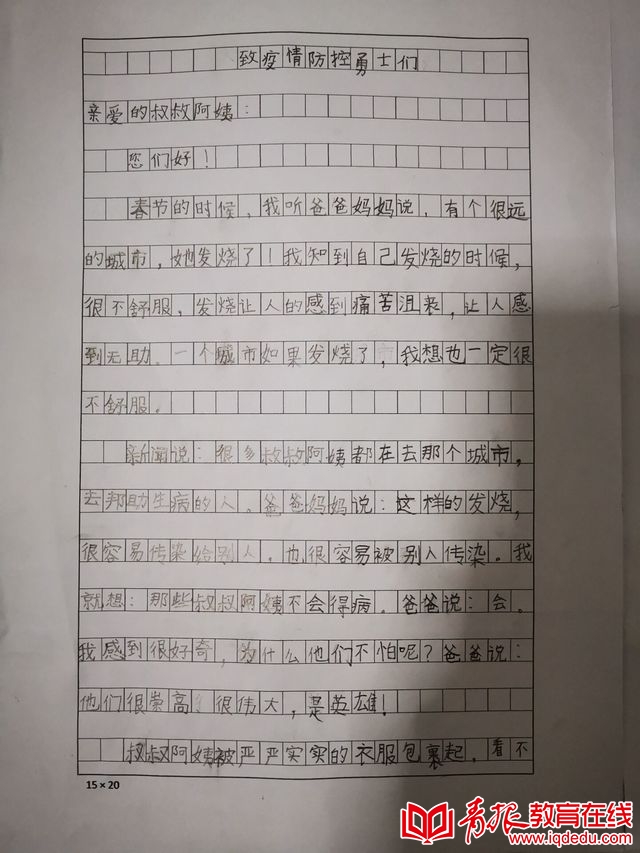 致疫情防控勇士们
亲爱的叔叔阿姨：
您们好！
春节的时候，我听爸爸妈妈说，有个很远
的城市，她发烧了！我知到自己发烧的时候，
很不舒服，发烧让人的感到痛苦沮丧，让人感
到无助。一个城市如果发烧了，我想也一定很
不舒服。
新闻说：很多叔叔阿姨都在去那个城市，
去邦助生病的人。爸爸妈妈说：这样的发烧，
很容易传染给别人，也很容易被别人传染。我
就想：那些叔叔阿姨不会得病。爸爸说：会。
我感到很好奇，为什么他们不怕呢？爸爸说：
他们很崇高，很伟大，是英雄！
叔叔阿姨被严严实实的衣服包裹起，看不
15×20
青报教育在线
www.iqdedu.com